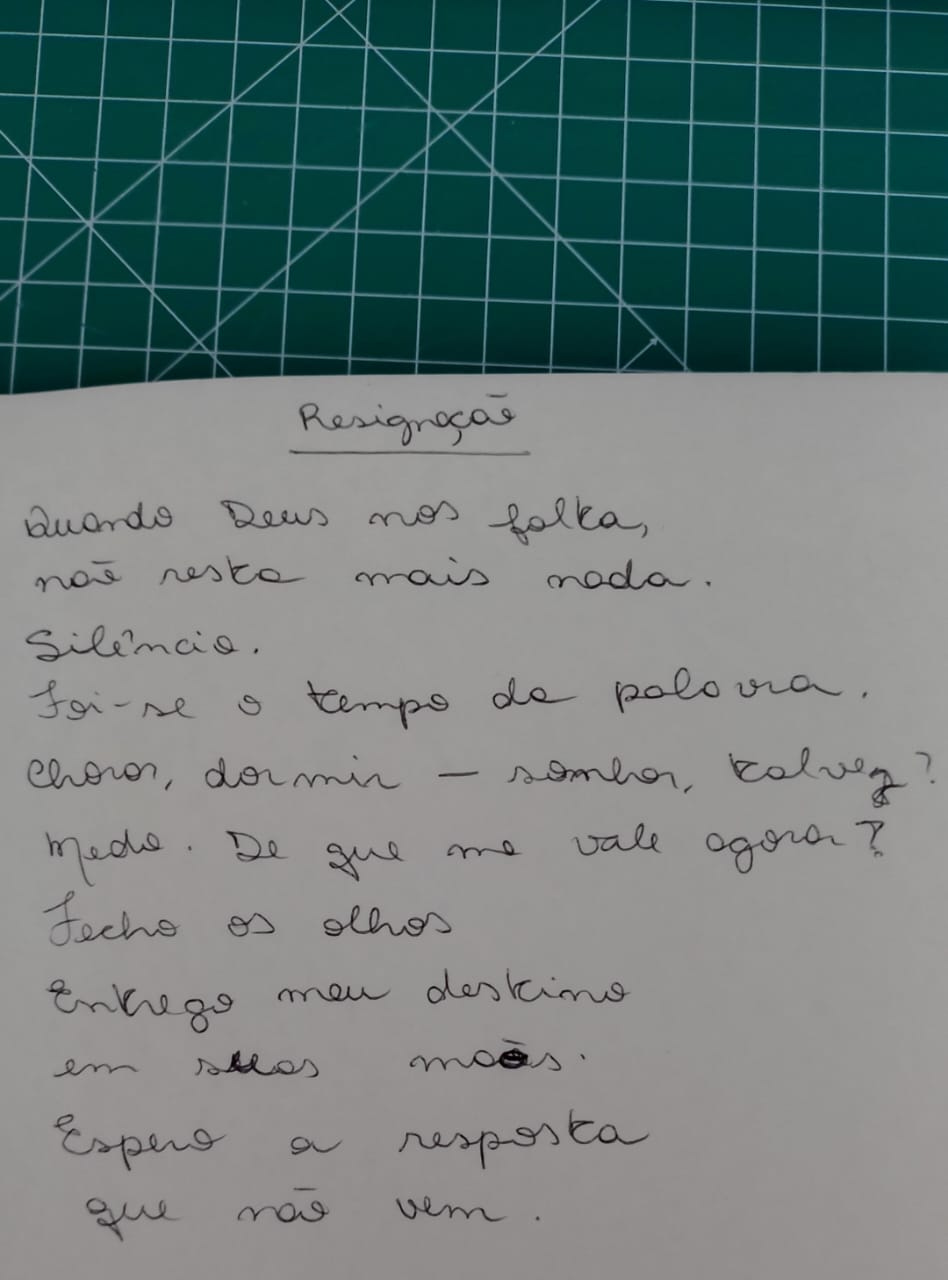 Resignação
Quando Deus nos falta,
não resta mais nada.
Silêncio.
Foi-se o tempo da palavra.
Chorar, dormir — sonhar, talvez?
Medo. De que me vale agora?
Fecho os olhos
Entrego meu destino
em suas mãos.
Espero a resposta
que não vem.